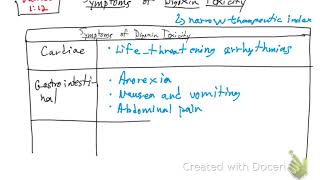 1:12
Symptoms of Digoxin Toxicity
↳ narrow therapeutic index
Symptoms of Digoxin Toxicity
Cardiac
• Life_threatening arrhythmias
Gastrointesti-
nal
• Anorexia
• Nausea and vomiting
• Abdominal pain
Created with Doceri